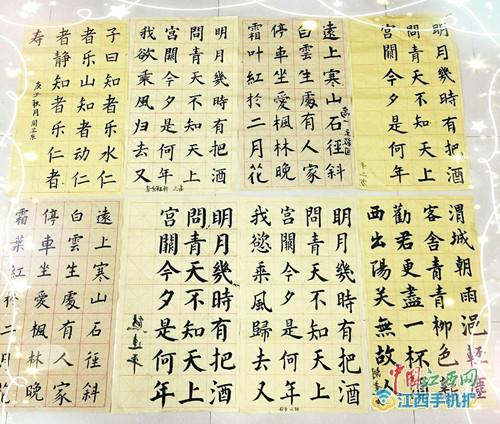 子曰知者乐水仁
者乐山知者动仁
者静知者乐仁者
寿
明月幾時有把酒
問青天不知天上
宮闕今夕是何年
我欲乘風归去又
遠上寒山石徑斜
白雲生處有人家
停車坐愛楓林晚
霜叶紅於二月花
明月幾時有把酒
問青天不知天上
宮闕今夕是何年
遠上寒山石徑斜
白雲生處有人家
停車坐愛楓林晚
霜葉紅於二月花
明月幾時有把酒
問青天不知天上
宮闕今夕是何年
明月幾時有把酒
問青天不知天上
宮闕今夕是何年
我慾乘風歸去又
渭城朝雨浥輕塵
客舍青青柳色新
勸君更盡一杯
西出陽关無故人
中国江西网
江西手机报